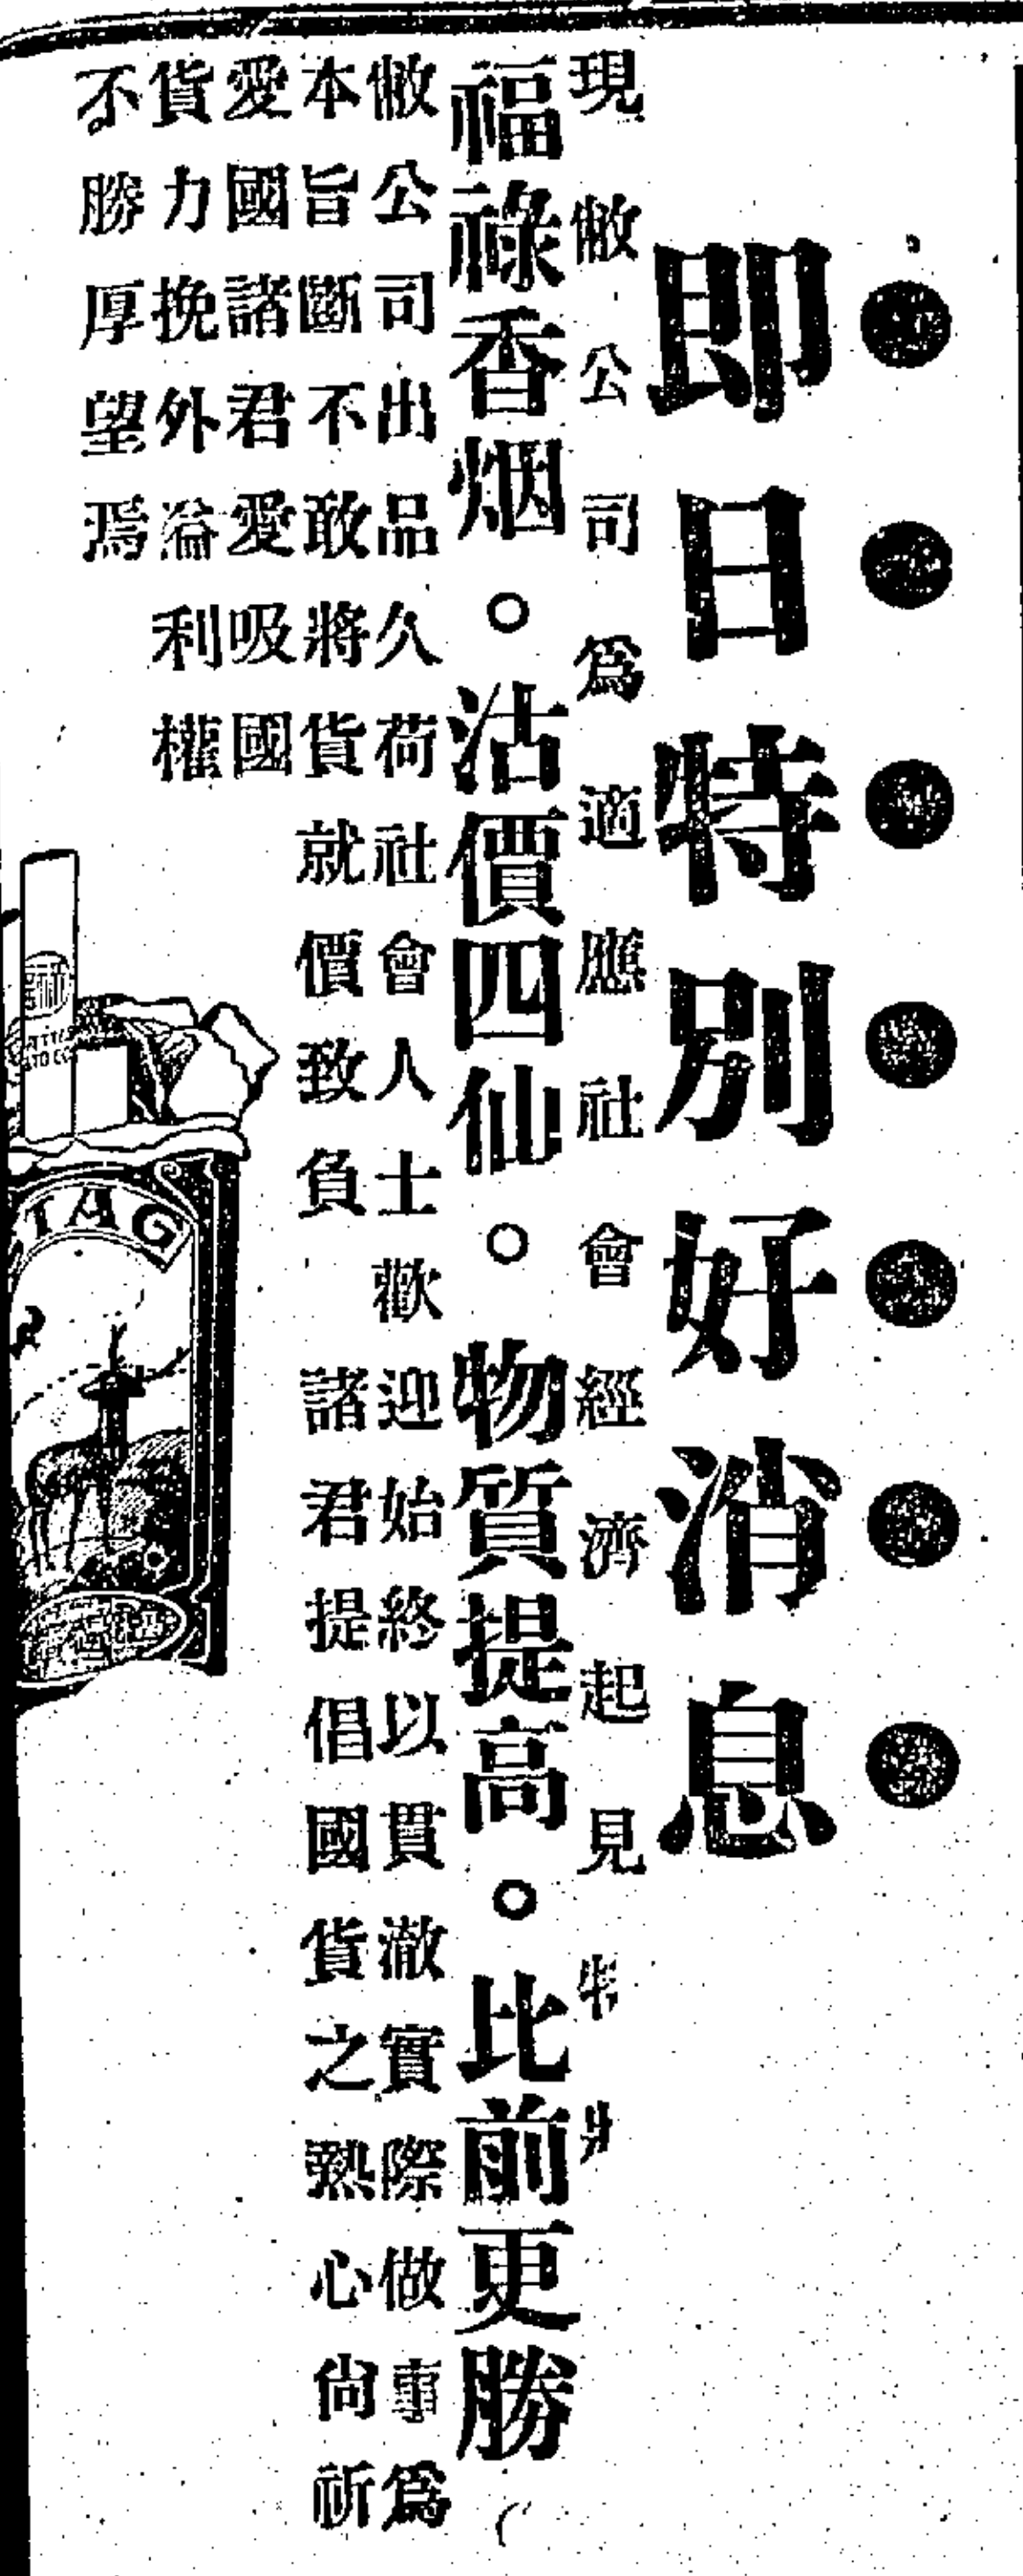 即日特別好消息
現敝公司爲適應社會經濟起見特將
福祿香烟。沽價四仙。物質提高。比前更勝
敝公司出品久荷社會人士歡迎始終以貫澈實際做事爲
本旨斷不敢將貨就價致負諸君提倡國貨之熱心尙祈
愛國諸君愛吸國
貨力挽外溢利權
不勝厚望焉
TAG